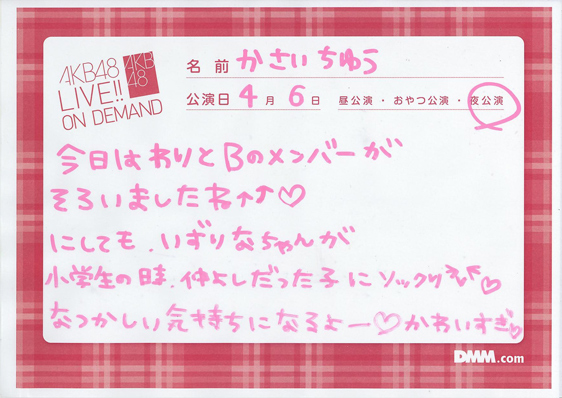 AKB48
LIVE!!
ON DEMAND
AKB
48
名前 かさいちゆう
公演日 4月 6日 昼公演・おやつ公演・夜公演
今日はわりとBのメンバーが
そろいましたね↑↑♡
にしても、いずりなちゃんが
小学生の時、仲よしだった子にソックリ♡
なつかしい気持ちになるよー♡かわいすぎ♡
DMM.com